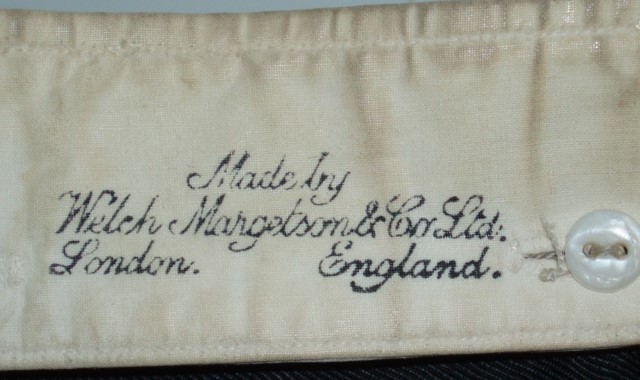 Made by
Welch Margetson & Co Ltd.
London. England.